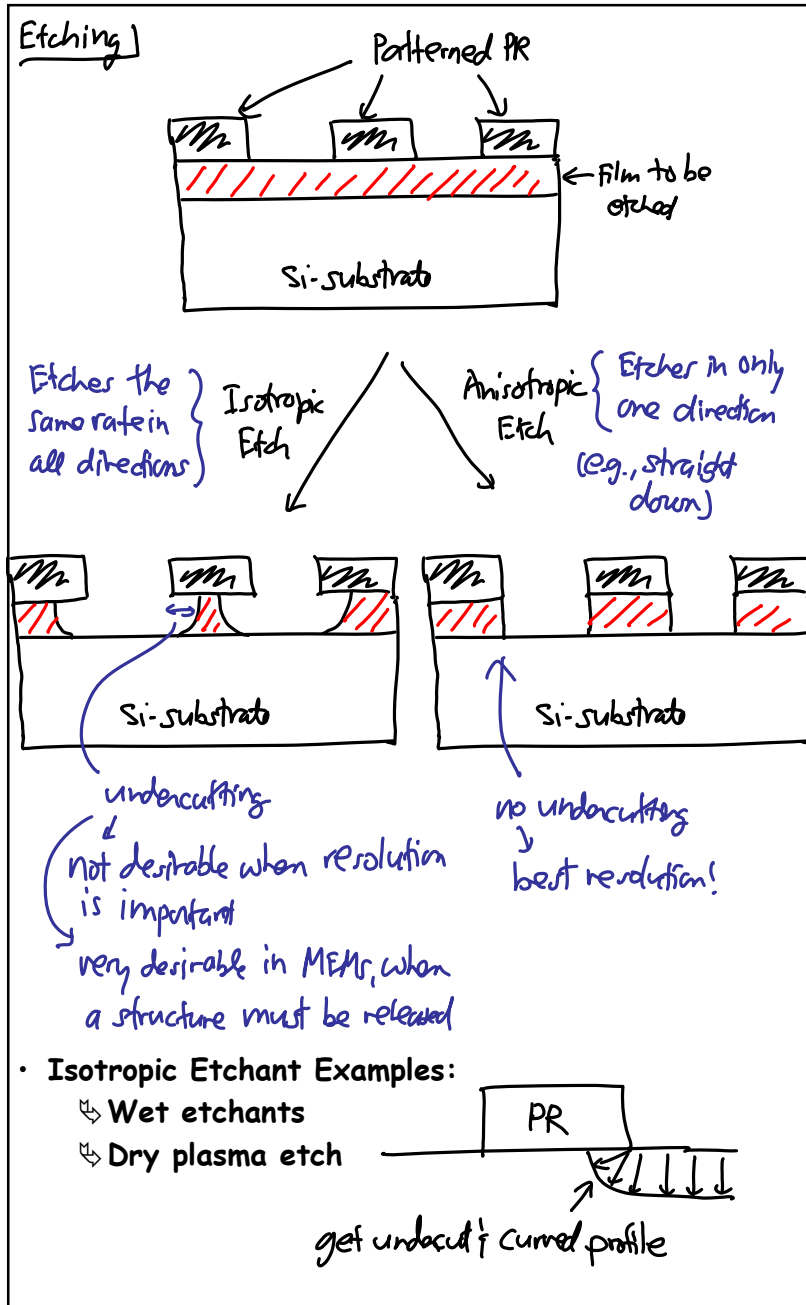 Etching
Patterned PR
Film to be
etched
Si-substrate
Etches the
same rate in
all directions
Isotropic
Etch
Anisotropic
Etch
Etches in only
one direction
(e.g., straight
down)
Si-substrate
Si-substrate
undercutting
not desirable when resolution
is important
very desirable in MEMs, when
a structure must be released
no undercutting
best resolution!
· Isotropic Etchant Examples:
Wet etchants
Dry plasma etch
PR
get undercut & curved profile